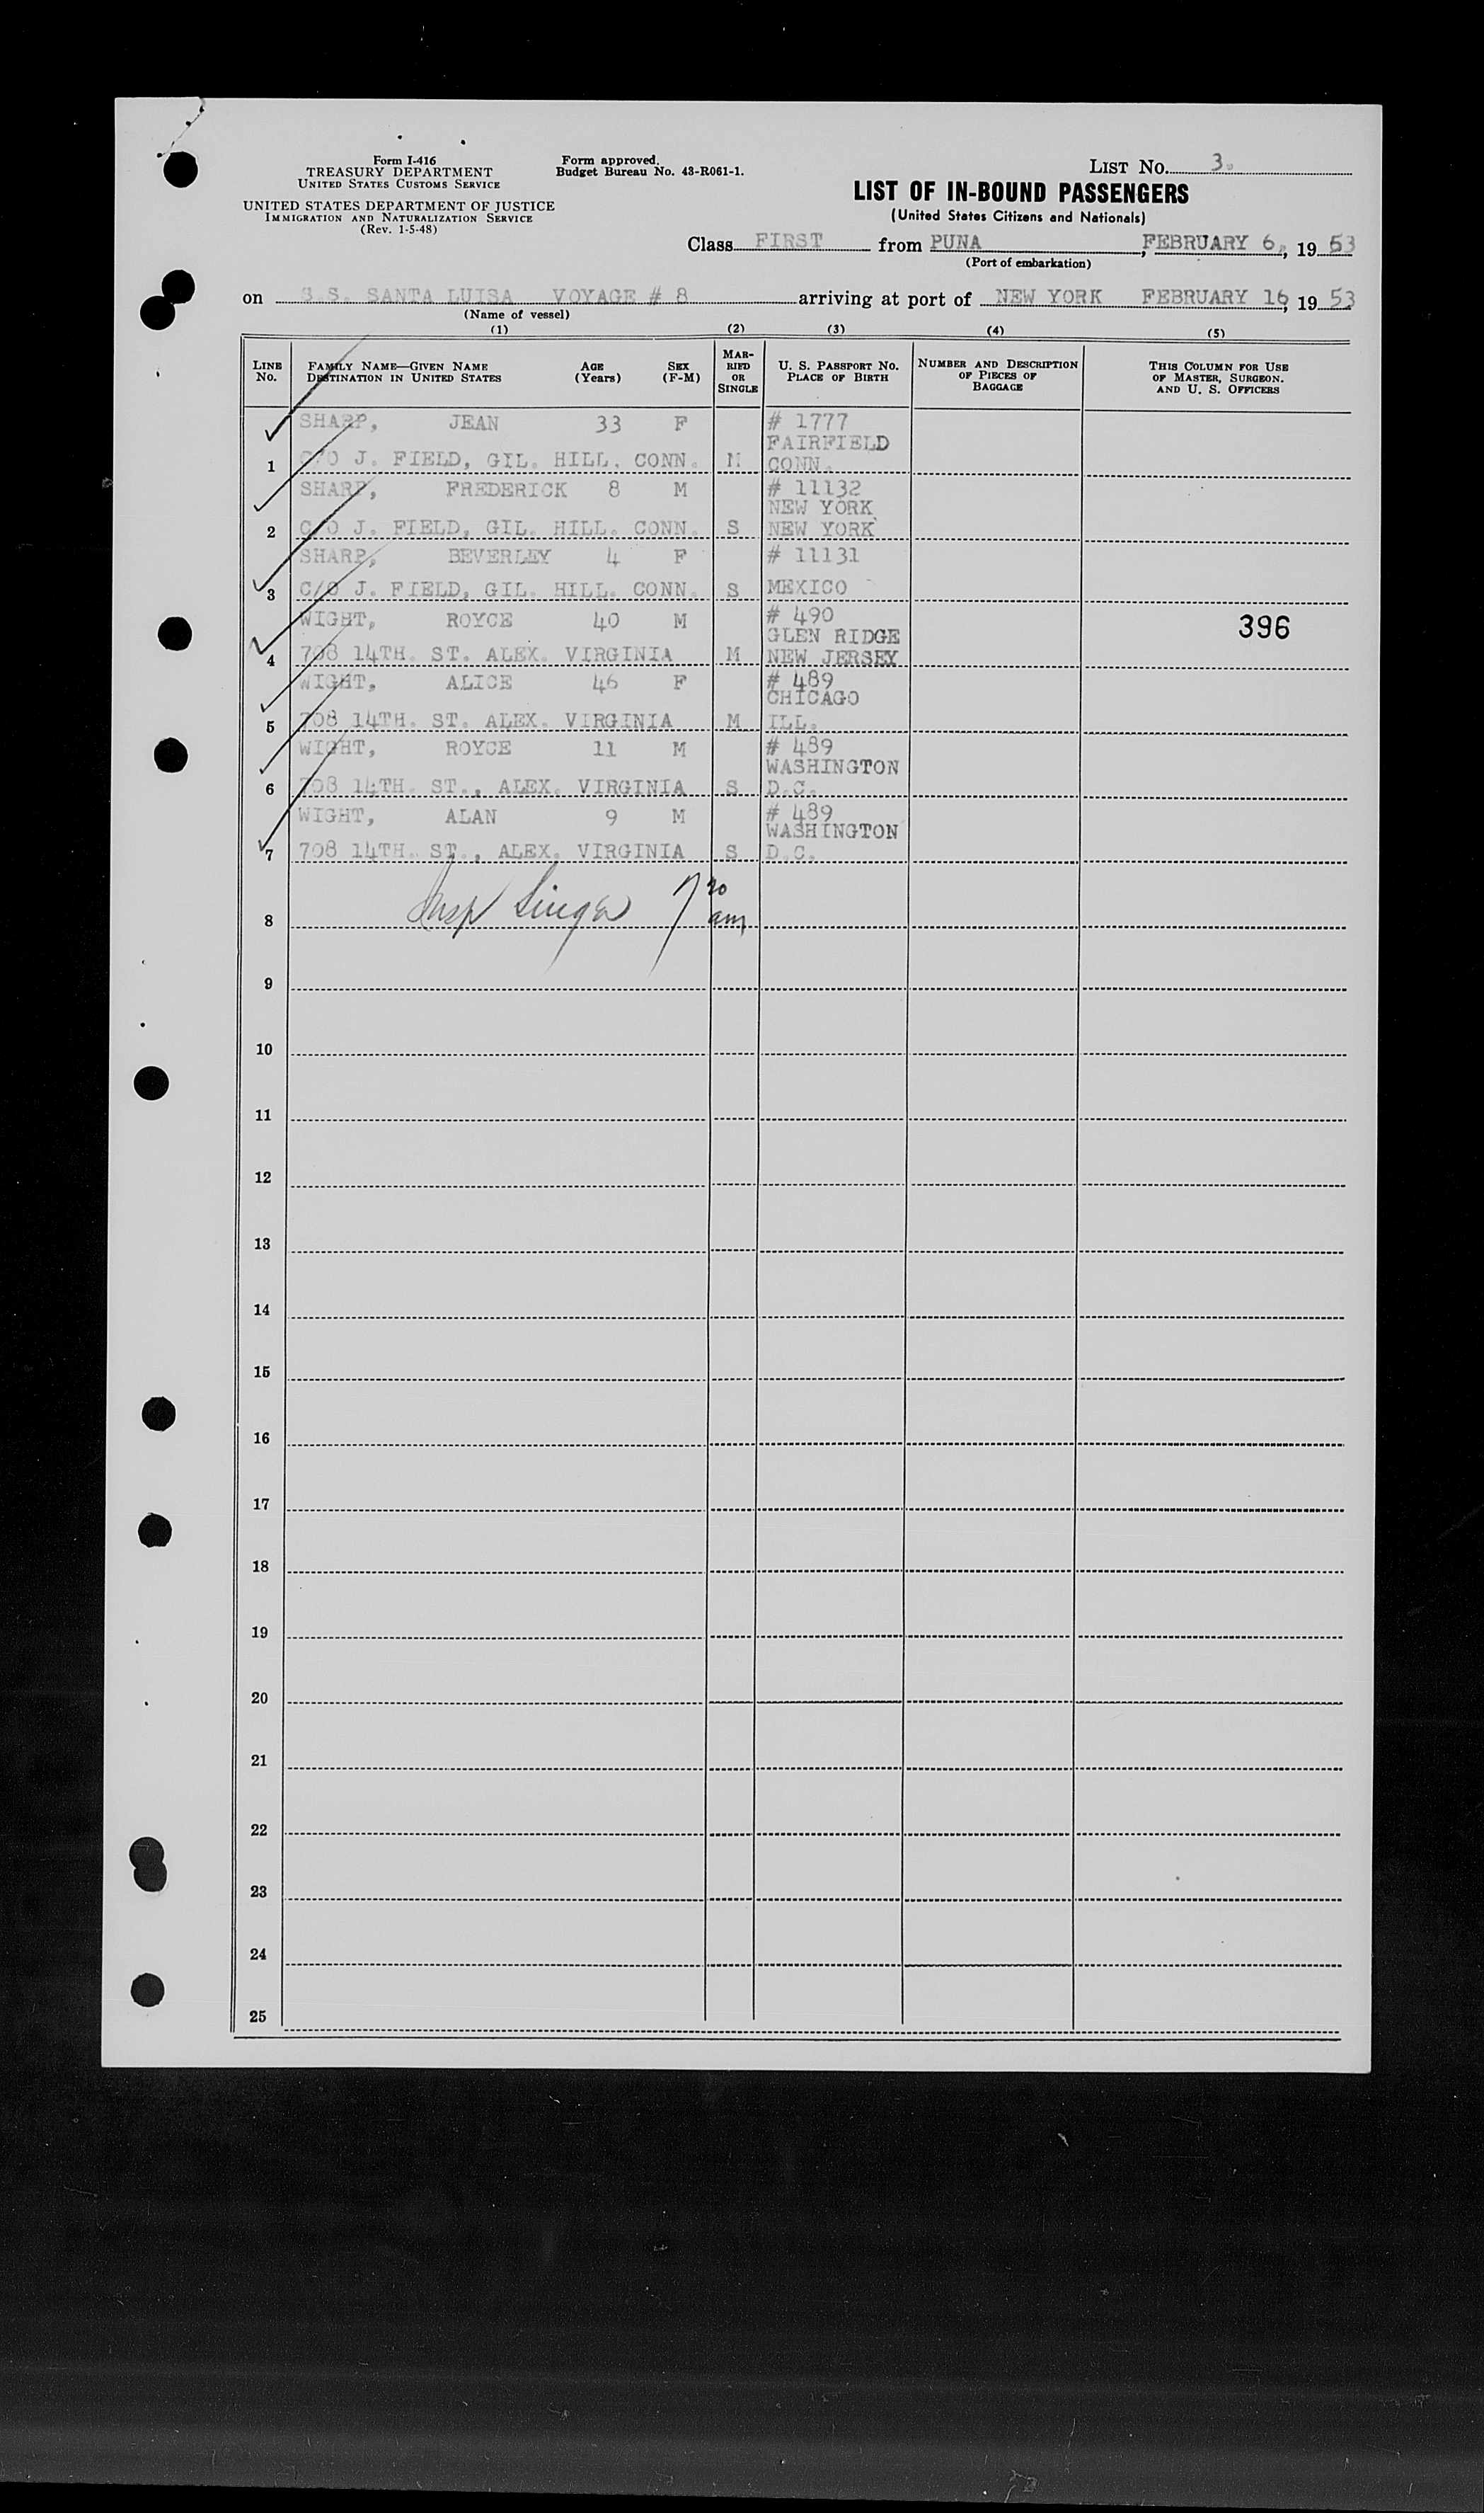 Form I-416
TREASURY DEPARTMENT
UNITED STATES CUSTOMS SERVICE
UNITED STATES DEPARTMENT OF JUSTICE
IMMIGRATION AND NATURALIZATION SERVICE
(Rev. 1-5-48)
Form approved.
Budget Bureau No. 43-R061-1.
LIST No. 3.
LIST OF IN-BOUND PASSENGERS
(United States Citizens and Nationals)
Class FIRST from PUNA, FEBRUARY 6, 1953
(Port of embarkation)
on S.S. SANTA LUISA VOYAGE # 8 arriving at port of NEW YORK FEBRUARY 16, 1953
(Name of vessel)
(1) (2) (3) (4) (5)
LINE No.
FAMILY NAME—GIVEN NAME
DESTINATION IN UNITED STATES
AGE (Years)
SEX (F-M)
MARRIED OR SINGLE
U. S. PASSPORT NO.
PLACE OF BIRTH
NUMBER AND DESCRIPTION OF PIECES OF BAGGAGE
THIS COLUMN FOR USE OF MASTER, SURGEON, AND U. S. OFFICERS
SHARP, JEAN 33 F # 1777
FAIRFIELD
1 C/O J. FIELD, GIL. HILL. CONN. M CONN.
SHARP, FREDERICK 8 M # 11132
NEW YORK
2 C/O J. FIELD, GIL. HILL. CONN. S NEW YORK
SHARP, BEVERLEY 4 F # 11131
3 C/O J. FIELD, GIL. HILL. CONN. S MEXICO
WIGHT, ROYCE 40 M # 490
396
GLEN RIDGE
4 708 14TH. ST. ALEX. VIRGINIA M NEW JERSEY
WIGHT, ALICE 46 F # 489
CHICAGO
5 708 14TH. ST. ALEX. VIRGINIA M ILL.
WIGHT, ROYCE 11 M # 489
WASHINGTON
6 708 14TH. ST., ALEX. VIRGINIA S D.C.
WIGHT, ALAN 9 M # 489
WASHINGTON
7 708 14TH. ST., ALEX. VIRGINIA S D.C.
Insp Singer 7 20 am
8
9
10
11
12
13
14
15
16
17
18
19
20
21
22
23
24
25